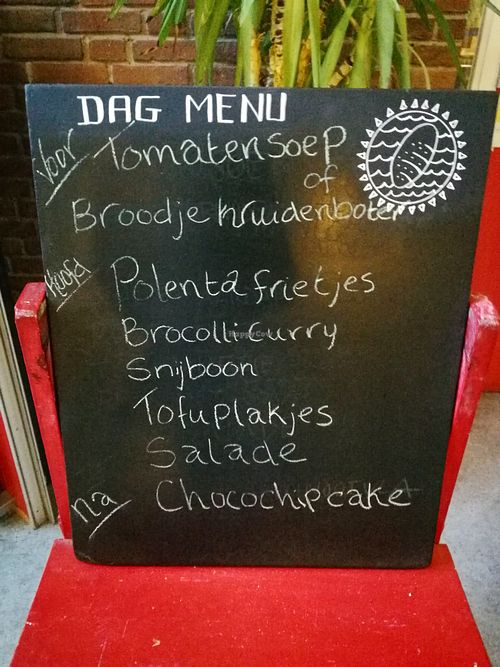 DAG MENU
Voor
Tomatensoep
of
Broodje kruidenboter
Hoofd
Polenta frietjes
Brocolli curry
Snijboon
Tofuplakjes
Salade
na
Chocochip cake
HappyCow